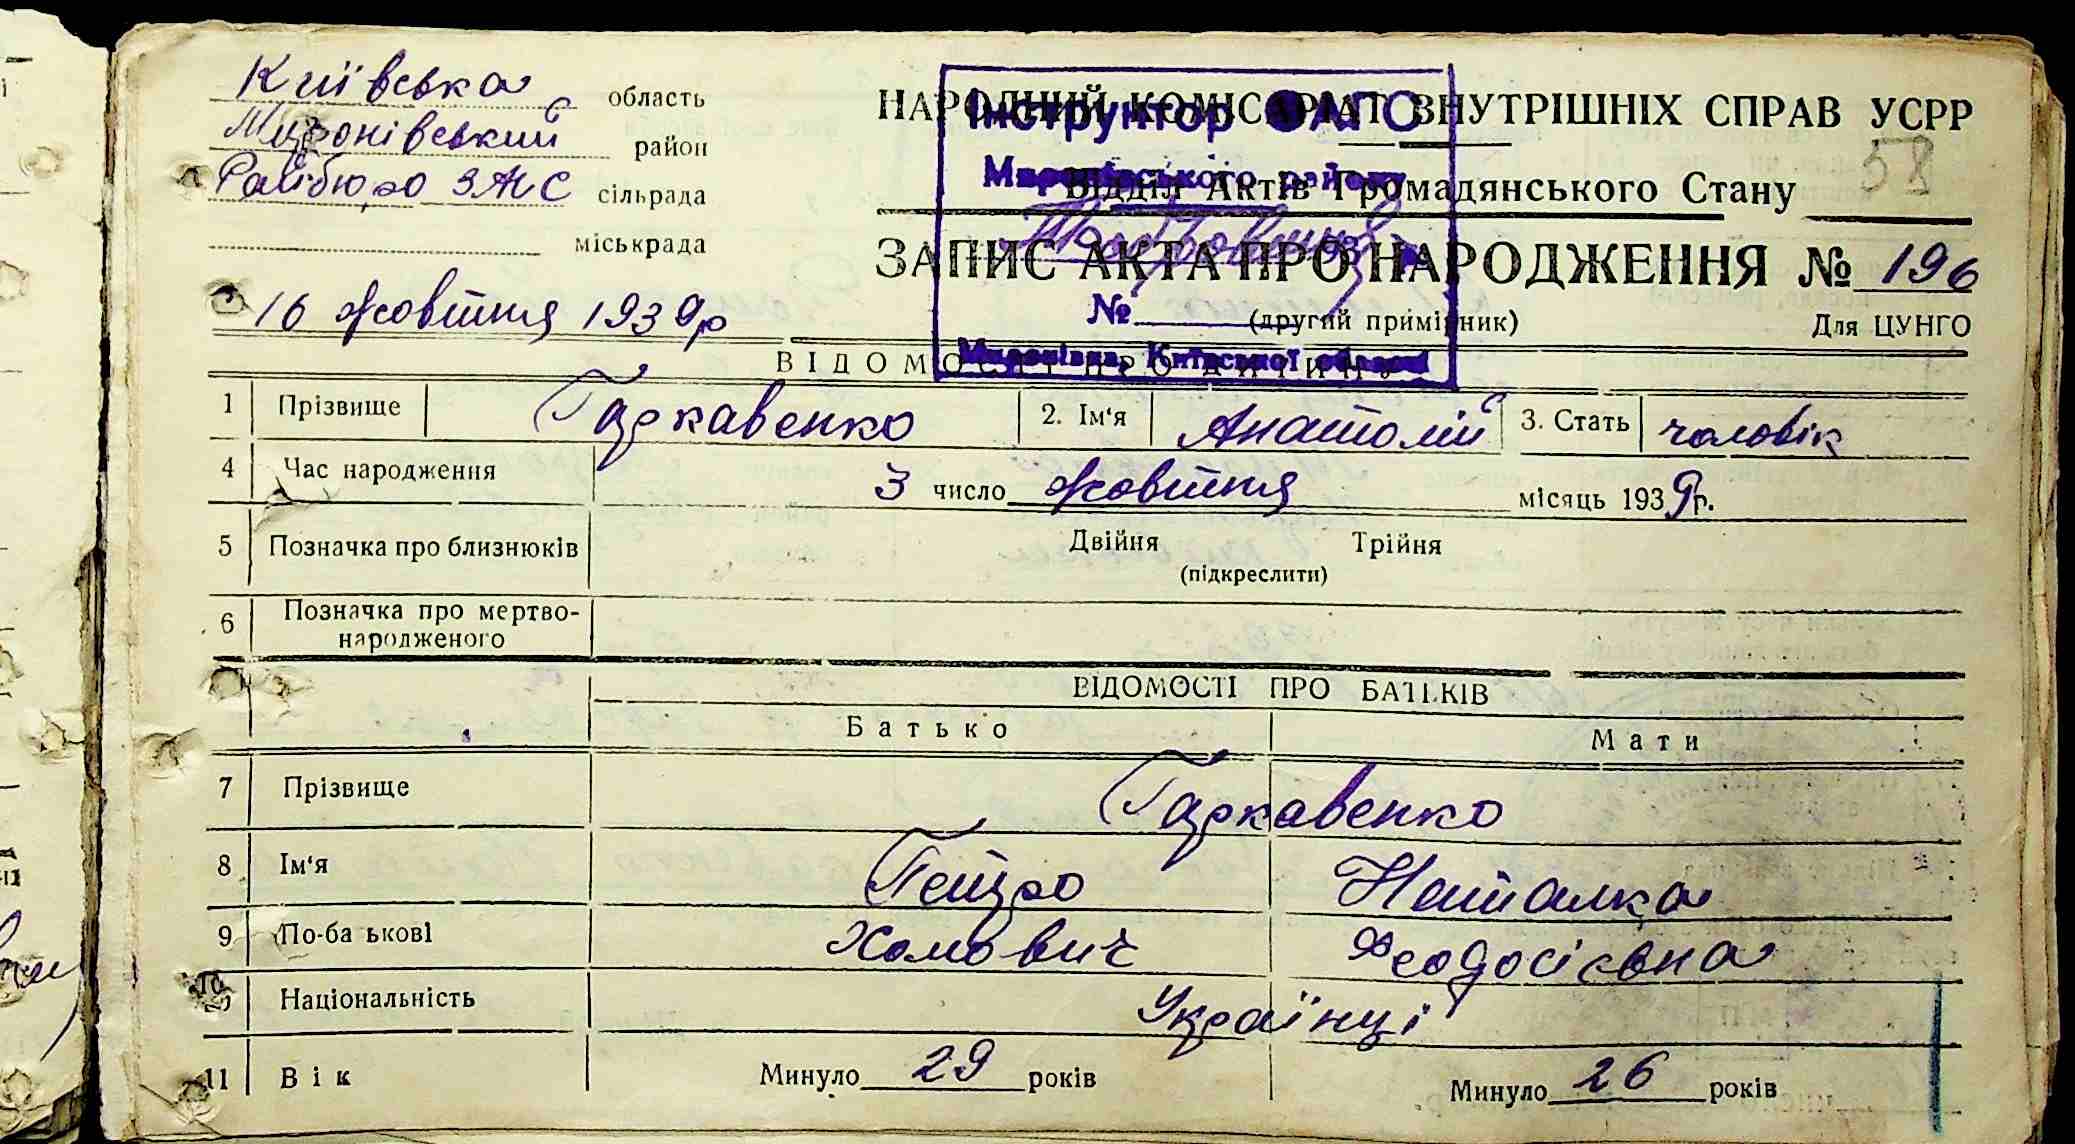 Київська область
Миронівський район
Райбюро ЗАГС сільрада
міськрада
16 жовтня 1939 р
НАРОДНИЙ КОМІСАРІАТ ВНУТРІШНІХ СПРАВ УСРР
58
Відділ Актів Громадянського Стану
ЗАПИС АКТА ПРО НАРОДЖЕННЯ № 196
(другий примірник) Для ЦУНГО
Інструктор ОАГС
Миронівського району
№
Миронівка, Київської області
ВІДОМОСТІ ПРО ДИТИНУ
1 Прізвище Гаркавенко 2. Ім'я Анатолій 3. Стать чоловік
4 Час народження 3 число жовтня місяць 1939 р.
5 Позначка про близнюків Двійня Трійня
(підкреслити)
6 Позначка про мертво-
народженого
ВІДОМОСТІ ПРО БАТЬКІВ
Батько Мати
7 Прізвище Гаркавенко
8 Ім'я Петро Наталка
9 По-ба ькові Хомович Феодосієвна
10 Національність Українці
11 Вік Минуло 29 років Минуло 26 років